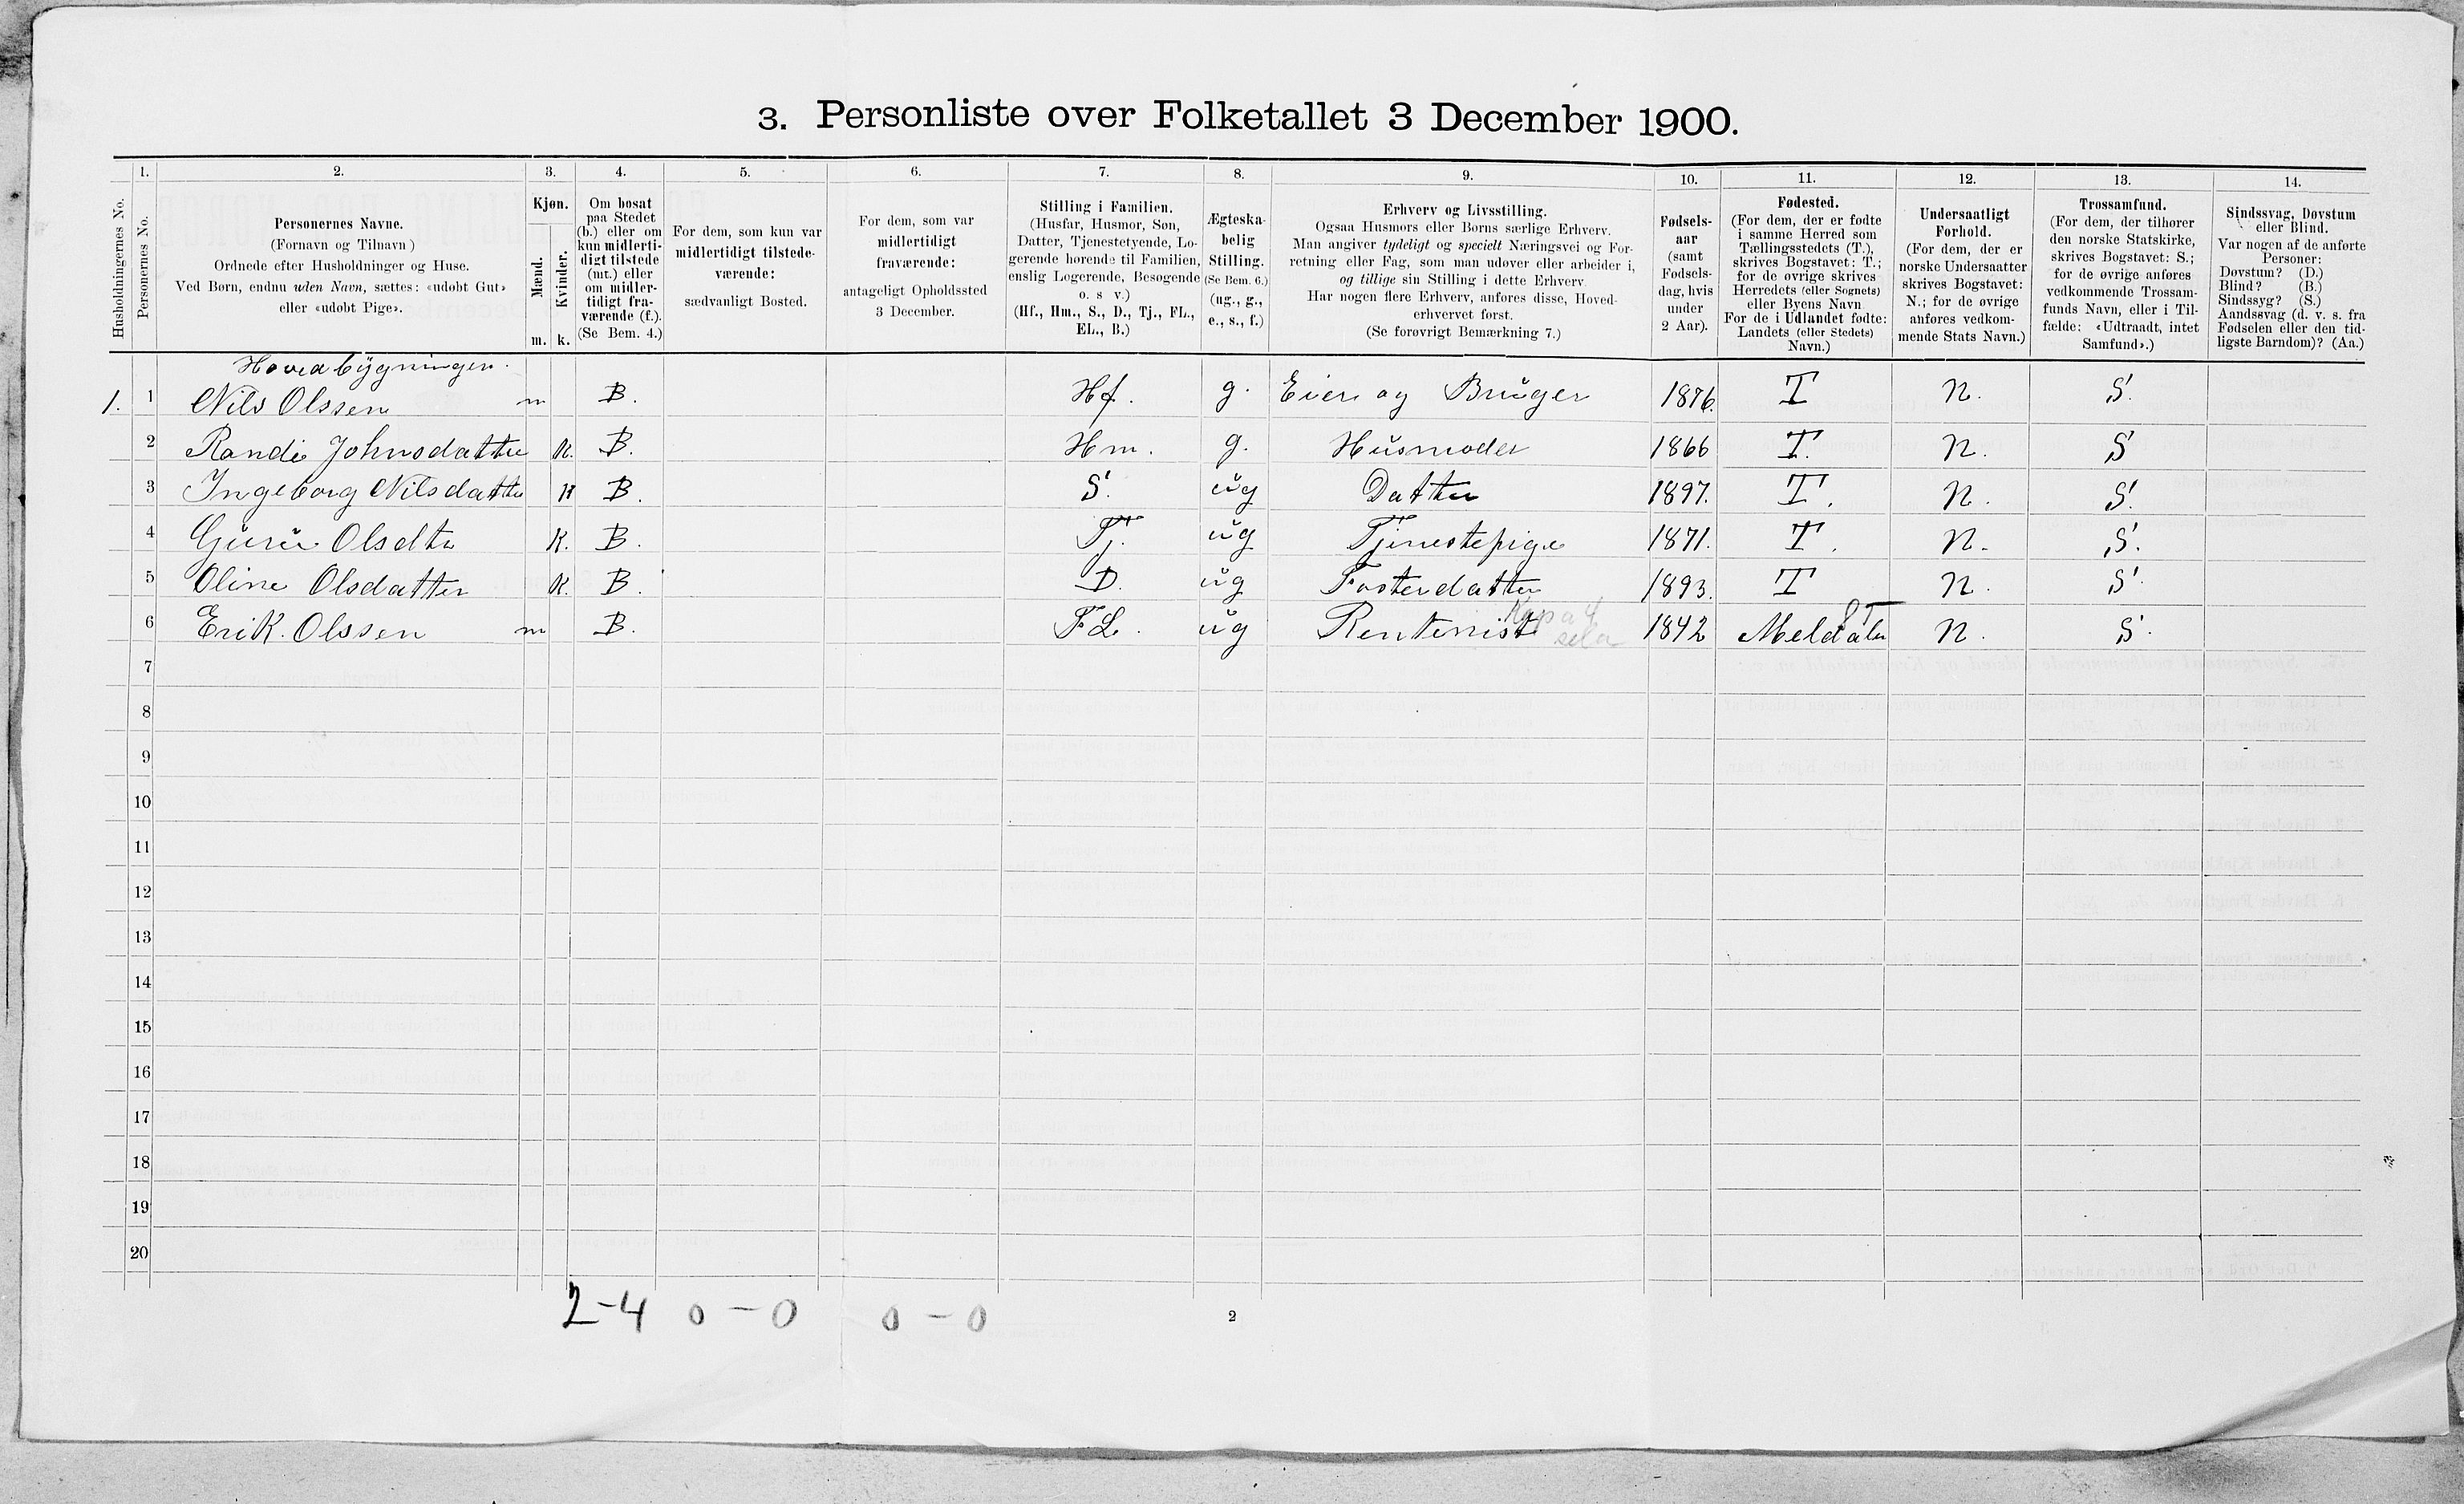 3. Personliste over Folketallet 3 December 1900.
Husholdningernes No.
1. Personernes No.
2. Personernes Navne.
(Fornavn og Tilnavn)
Ordnede efter Husholdninger og Huse.
Ved Børn, endnu uden Navn, sættes: «udøbt Gut»
eller «udøbt Pige».
3. Kjøn.
Mænd. m.
Kvinder. k.
4. Om bosat
paa Stedet
(b.) eller om
kun midlerti-
digt tilstede
(mt.) eller
om midler-
tidigt fra-
værende (f.).
(Se Bem. 4.)
5. For dem, som kun var
midlertidigt tilstede-
værende:
sædvanligt Bosted.
6. For dem, som var
midlertidigt
fraværende:
antageligt Opholdssted
3 December.
7. Stilling i Familien.
(Husfar, Husmor, Søn,
Datter, Tjenestetyende, Lo-
gerende hørende til Familien,
enslig Logerende, Besøgende
o. s v.)
(Hf., Hm., S., D., Tj., FL.,
EL., B.)
8. Ægteska-
belig
Stilling.
(Se Bem. 6.)
(ug., g.,
e., s., f.)
9. Erhverv og Livsstilling.
Ogsaa Husmors eller Børns særlige Erhverv.
Man angiver tydeligt og specielt Næringsvei og For-
retning eller Fag, som man udøver eller arbeider i,
og tillige sin Stilling i dette Erhverv.
Har nogen flere Erhverv, anføres disse, Hoved-
erhvervet først.
(Se forøvrigt Bemærkning 7.)
10. Fødsels-
aar
(samt
Fødsels-
dag, hvis
under
2 Aar).
11. Fødested.
(For dem, der er fødte
i samme Herred som
Tællingsstedets (T.),
skrives Bogstavet: T.;
for de øvrige skrives
Herredets (eller Sognets)
eller Byens Navn.
For de i Udlandet fødte:
Landets (eller Stedets)
Navn.)
12. Undersaatligt
Forhold.
(For dem, der er
norske Undersaatter
skrives Bogstavet:
N.; for de øvrige
anføres vedkom-
mende Stats Navn.)
13. Trossamfund.
(For dem, der tilhører
den norske Statskirke,
skrives Bogstavet: S.;
for de øvrige anføres
vedkommende Trossam-
funds Navn, eller i Til-
fælde: «Udtraadt, intet
Samfund».)
14. Sindssvag, Døvstum
eller Blind.
Var nogen af de anførte
Personer:
Døvstum? (D.)
Blind? (B.)
Sindssyg? (S.)
Aandssvag (d. v. s. fra
Fødselen eller den tid-
ligste Barndom)? (Aa.)
Hovedbygningen.
1. 1 Nils Olssen m B. Hf. g. Eier og Bruger 1876. T N. S.
2 Randi Johnsdatter K. B. Hm. g. Husmoder 1866 T. N. S
3 Ingeborg Nilsdatter K B. S. ug Datter 1897. T. N. S.
4 Guru Olsdtr K. B. Tj. ug Tjenestepige 1871. T. N. S.
5 Oline Olsdatter K. B. D. ug Fosterdatter 1893. T N. S.
6 Erik. Olssen m B. FL. ug Rentenist 1842 Meldalen N. S.
7
8
9
10
11
12
13
14
15
16
17
18
19
20
2-4 0-0 0-0
2